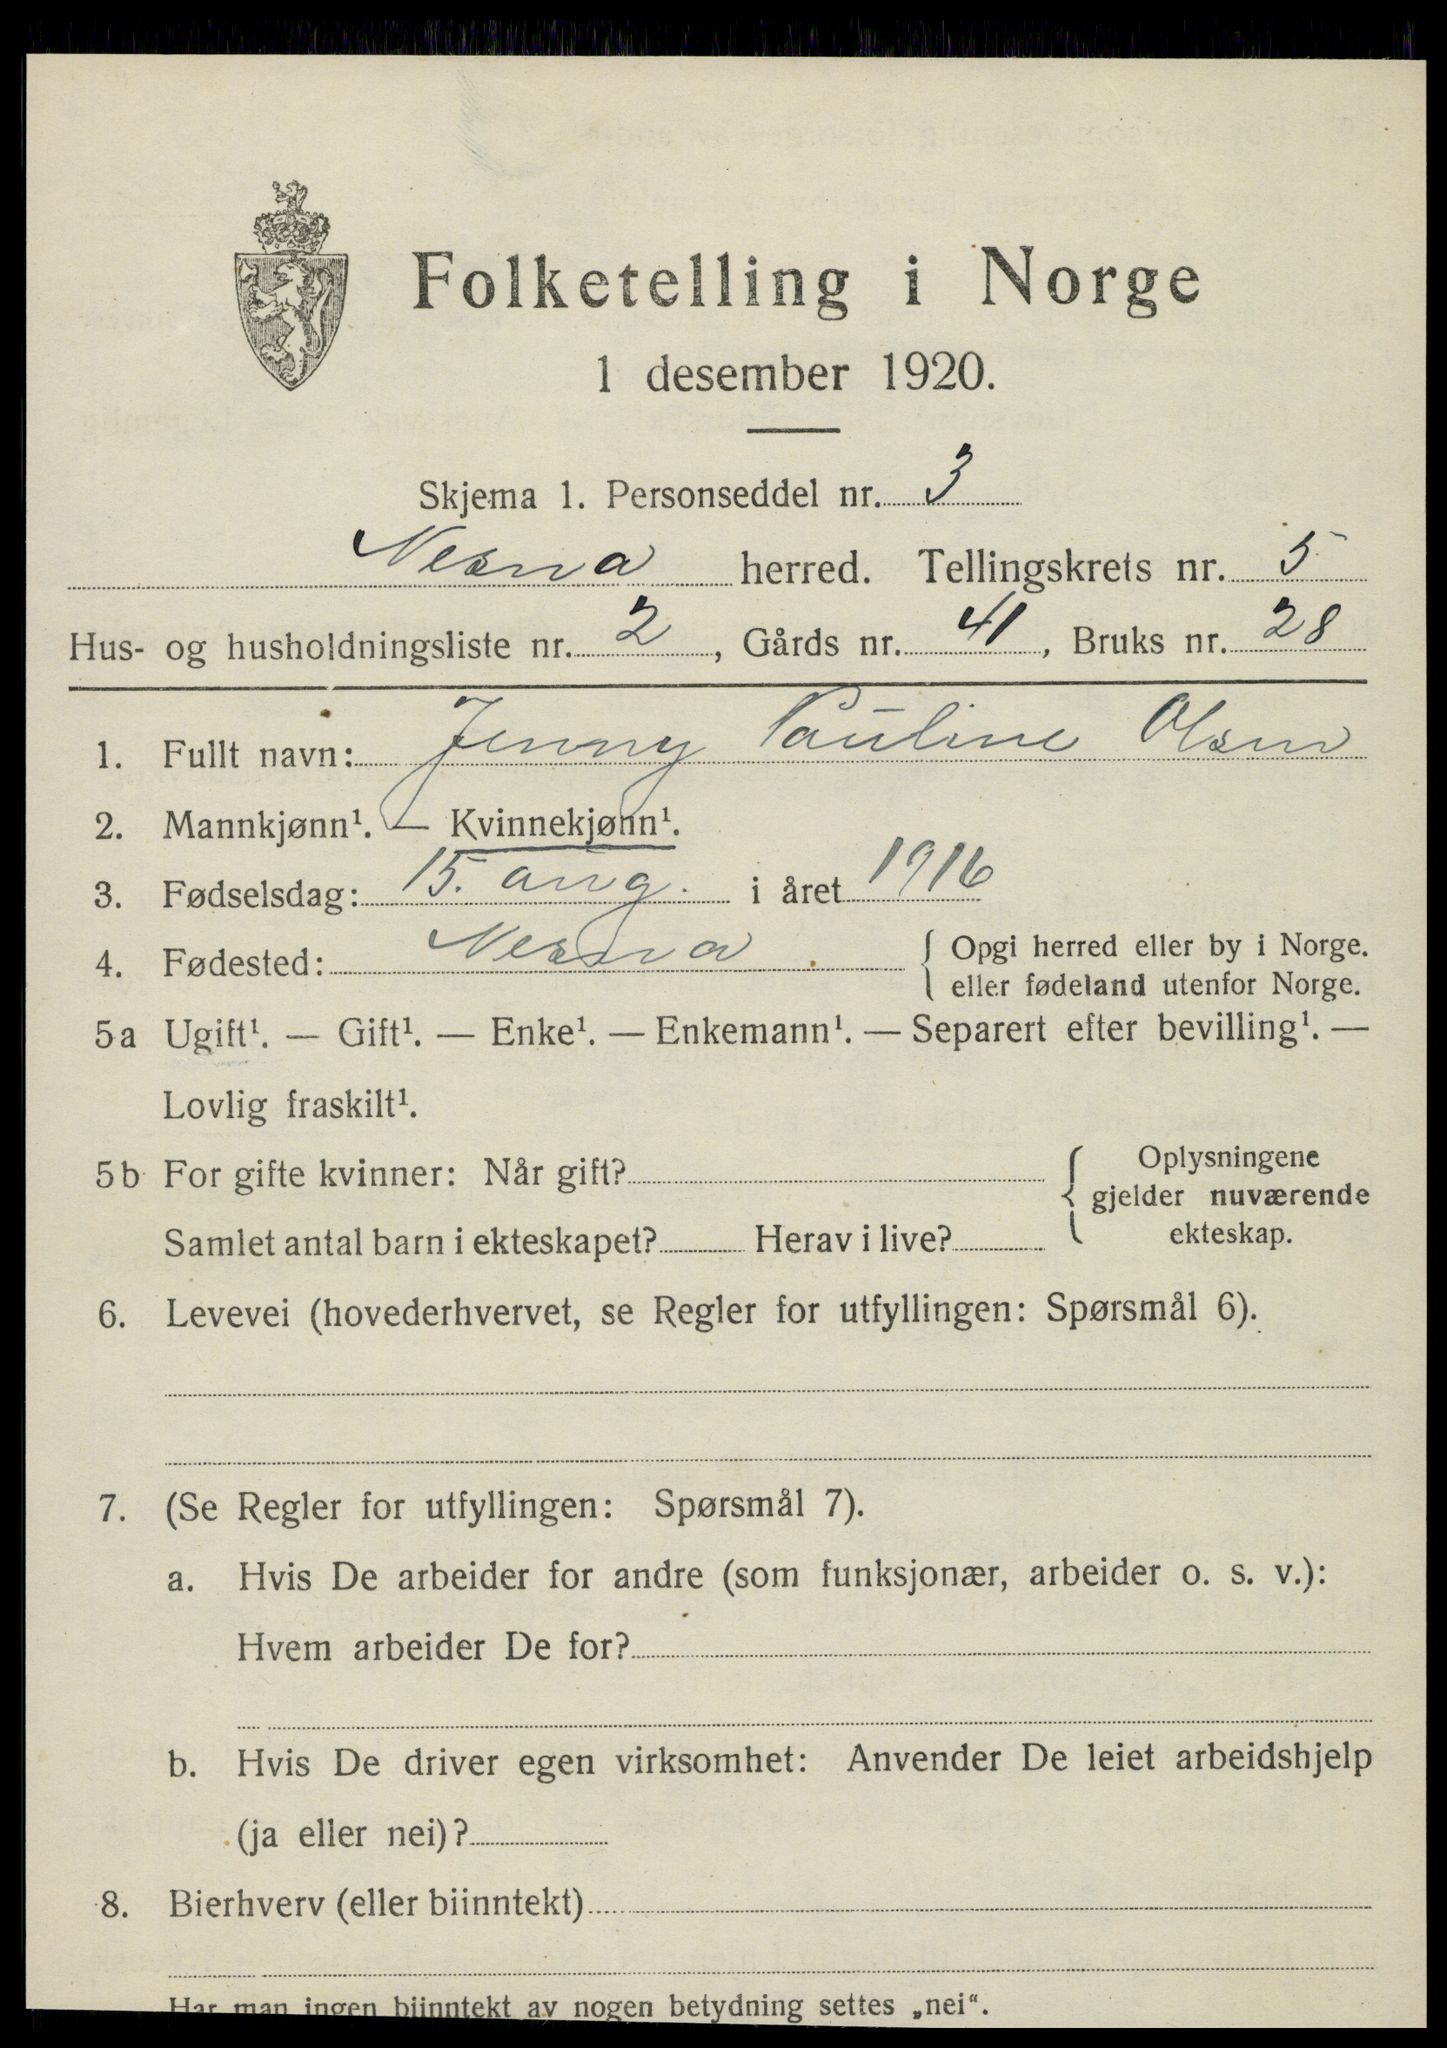 Folketelling i Norge
1 desember 1920.
Skjema 1. Personseddel nr. 3
Nesna herred. Tellingskrets nr. 5
Hus- og husholdningsliste nr. 2, Gårds nr. 41, Bruks nr. 28
1. Fullt navn: Jenny Pauline Olsen
2. Mannkjønn¹. — Kvinnekjønn¹.
3. Fødselsdag: 15. aug. i året 1916
4. Fødested: Nesna { Opgi herred eller by i Norge.
eller fødeland utenfor Norge.
5a Ugift¹. — Gift¹. — Enke¹. — Enkemann¹. — Separert efter bevilling¹. —
Lovlig fraskilt¹.
5b For gifte kvinner: Når gift?
Samlet antal barn i ekteskapet? Herav i live?
{ Oplysningene
gjelder nuværende
ekteskap.
6. Levevei (hovederhvervet, se Regler for utfyllingen: Spørsmål 6).
7. (Se Regler for utfyllingen: Spørsmål 7).
a. Hvis De arbeider for andre (som funksjonær, arbeider o. s. v.):
Hvem arbeider De for?
b. Hvis De driver egen virksomhet: Anvender De leiet arbeidshjelp
(ja eller nei)?
8. Bierhverv (eller biinntekt)
Har man ingen biinntekt av nogen betydning settes „nei“.